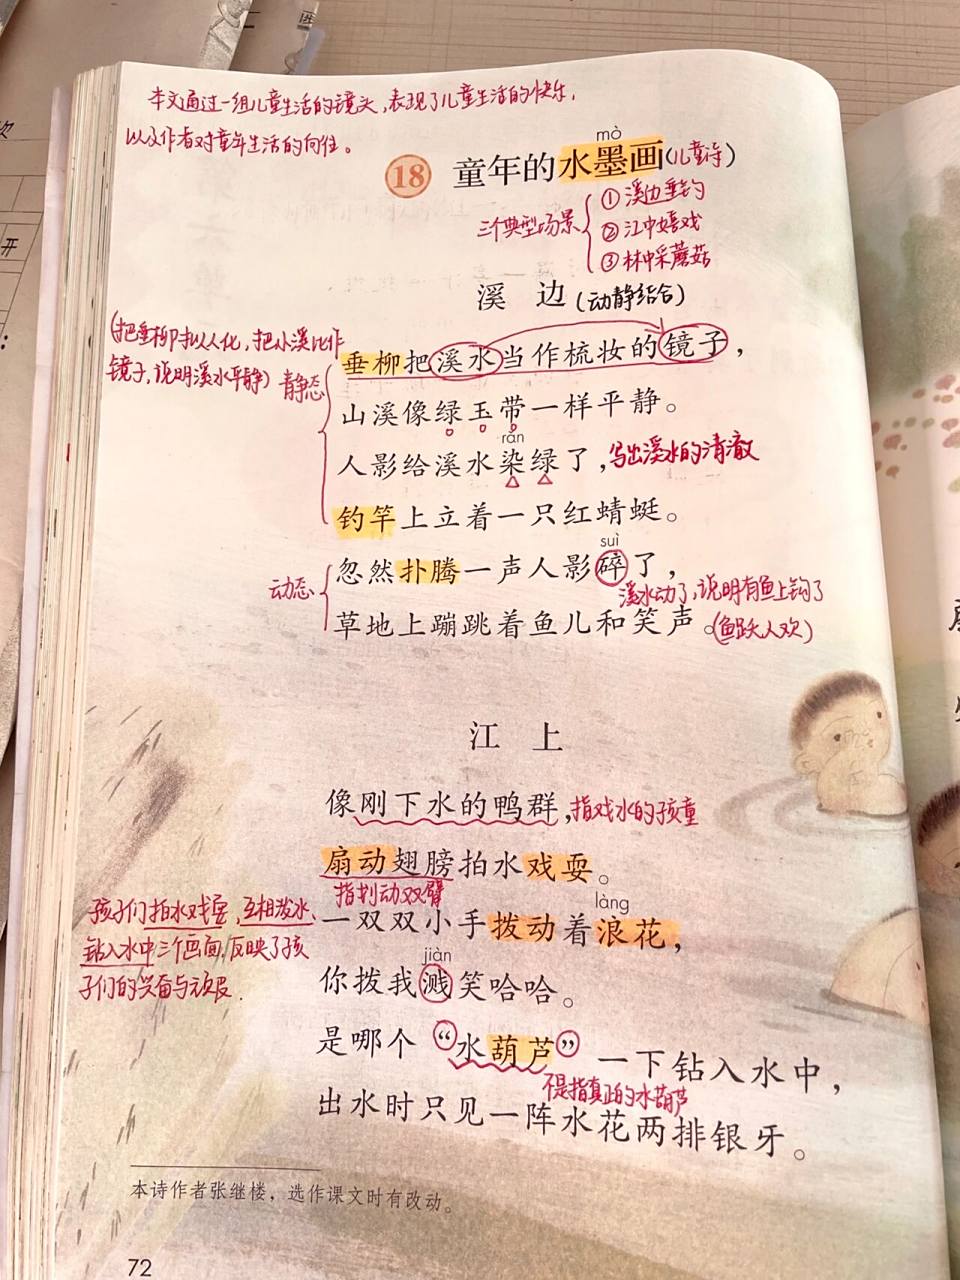 本文通过一组儿童生活的镜头,表现了儿童生活的快乐,
以及作者对童年生活的向往。
mò
18 童年的水墨画(儿童诗)
三个典型场景
①溪边垂钓
②江中嬉戏
③林中采蘑菇
溪 边(动静结合)
(把垂柳拟人化,把小溪比作
镜子,说明溪水平静)
静态
垂柳把溪水当作梳妆的镜子,
山溪像绿玉带一样平静。
rǎn
人影给溪水染绿了,写出溪水的清澈
钓竿上立着一只红蜻蜓。
suì
动态
忽然扑腾一声人影碎了,
溪水动了,说明有鱼上钩了
草地上蹦跳着鱼儿和笑声。(鱼跃人欢)
江 上
像刚下水的鸭群,指戏水的孩童
扇动翅膀拍水戏耍。
指划动双臂
làng
一双双小手拨动着浪花,
孩子们拍水戏耍,互相泼水、
钻入水中三个画面,反映了孩
子们的兴奋与顽皮.
jiàn
你拨我溅笑哈哈。
是哪个“水葫芦”一下钻入水中,
不是指真正的水葫芦
出水时只见一阵水花两排银牙。
本诗作者张继楼,选作课文时有改动。
72
开